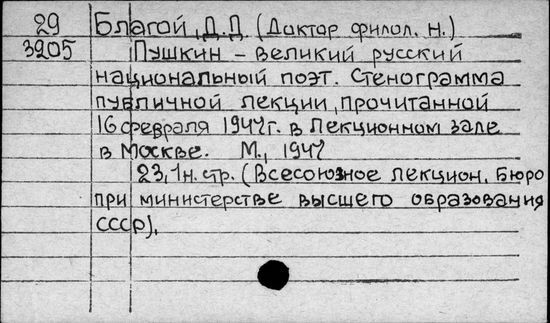 29 Благой, Д.Д. (Доктор филол. н.)
3205 Пушкин - великий русский
национальный поэт. Стенограмма
публичной лекции, прочитанной
16 февраля 1947г. в Лекционном зале
в Москве. М., 1947
23, 1н. стр. (Всесоюзное лекцион. Бюро
при министерстве высшего образования
СССР).